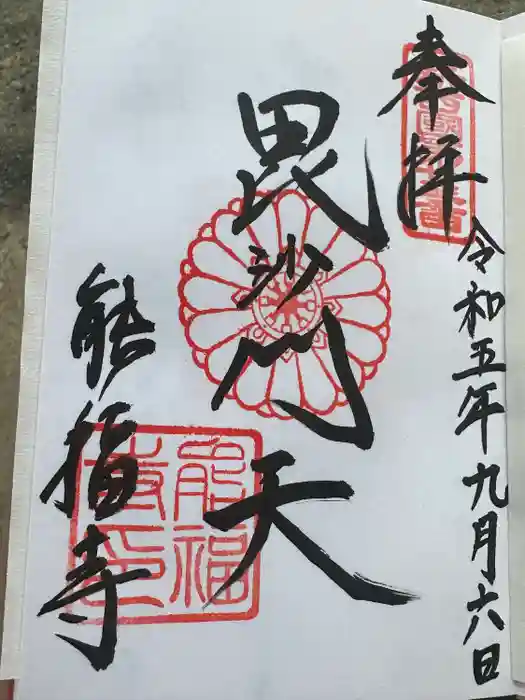 奉拝
令和五年九月六日
毘沙門天
能福寺
能福寺印